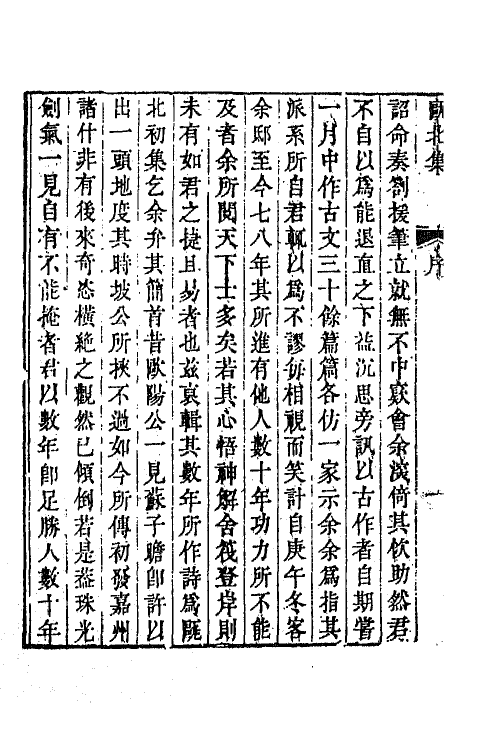 甌北集 序 一
詔命奏劄援筆立就無不中窾會余深倚其佽助然君
不自以爲能退直之下益沉思旁訊以古作者自期嘗
一月中作古文三十餘篇篇各仿一家示余余爲指其
派系所自君輒以爲不謬每相視而笑計自庚午冬客
余邸至今七八年其所進有他人數十年功力所不能
及者余所閱天下士多矣若其心悟神解舍筏登岸則
未有如君之捷且易者也玆裒輯其數年所作詩爲甌
北初集乞余弁其簡首昔歐陽公一見蘇子瞻卽許以
出一頭地度其時坡公所挾不過如今所傳初發嘉州
諸什非有後來奇恣橫絶之觀然已傾倒若是葢珠光
劍氣一見自有不能掩者君以數年卽足勝人數十年